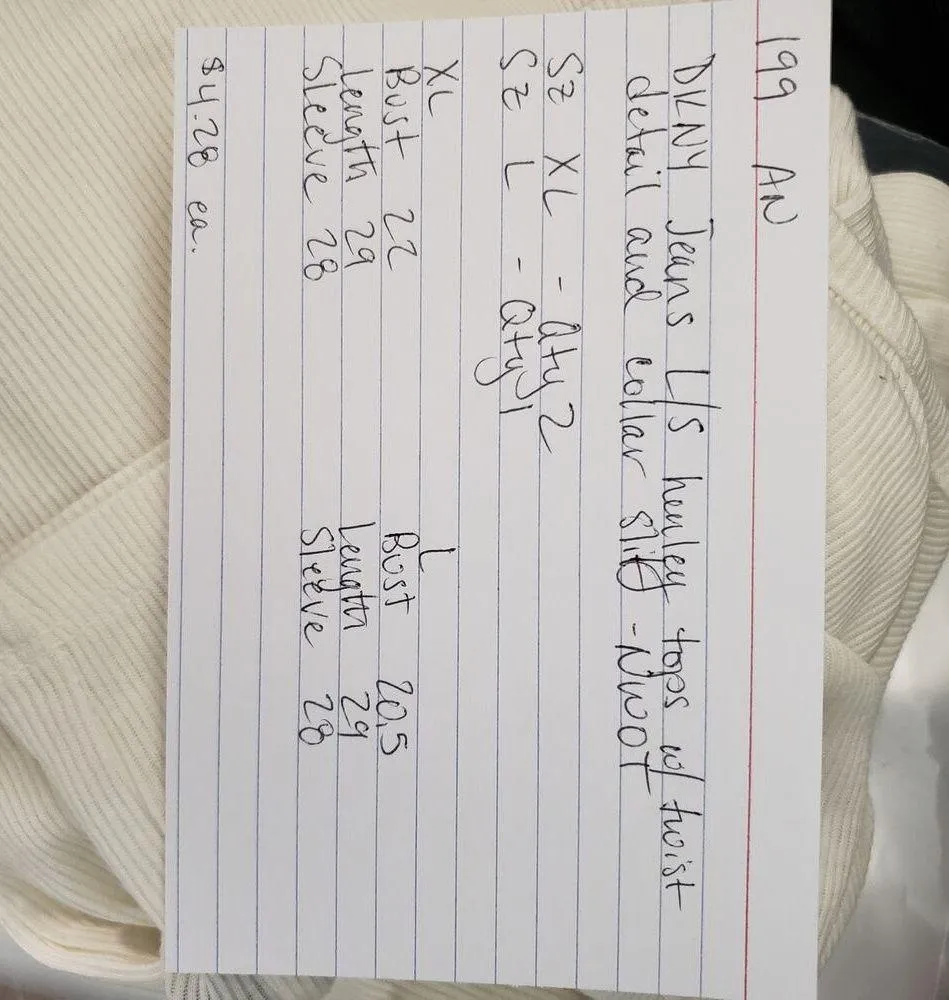 199 AN
DKNY Jeans L/S henley tops w/ twist
detail and collar slit -NWOT
Sz XL - Qty 2
Sz L - Qty 1
XL
Bust 22
Length 29
Sleeve 28
L
Bust 20.5
Length 29
Sleeve 28
$4.28 ea.